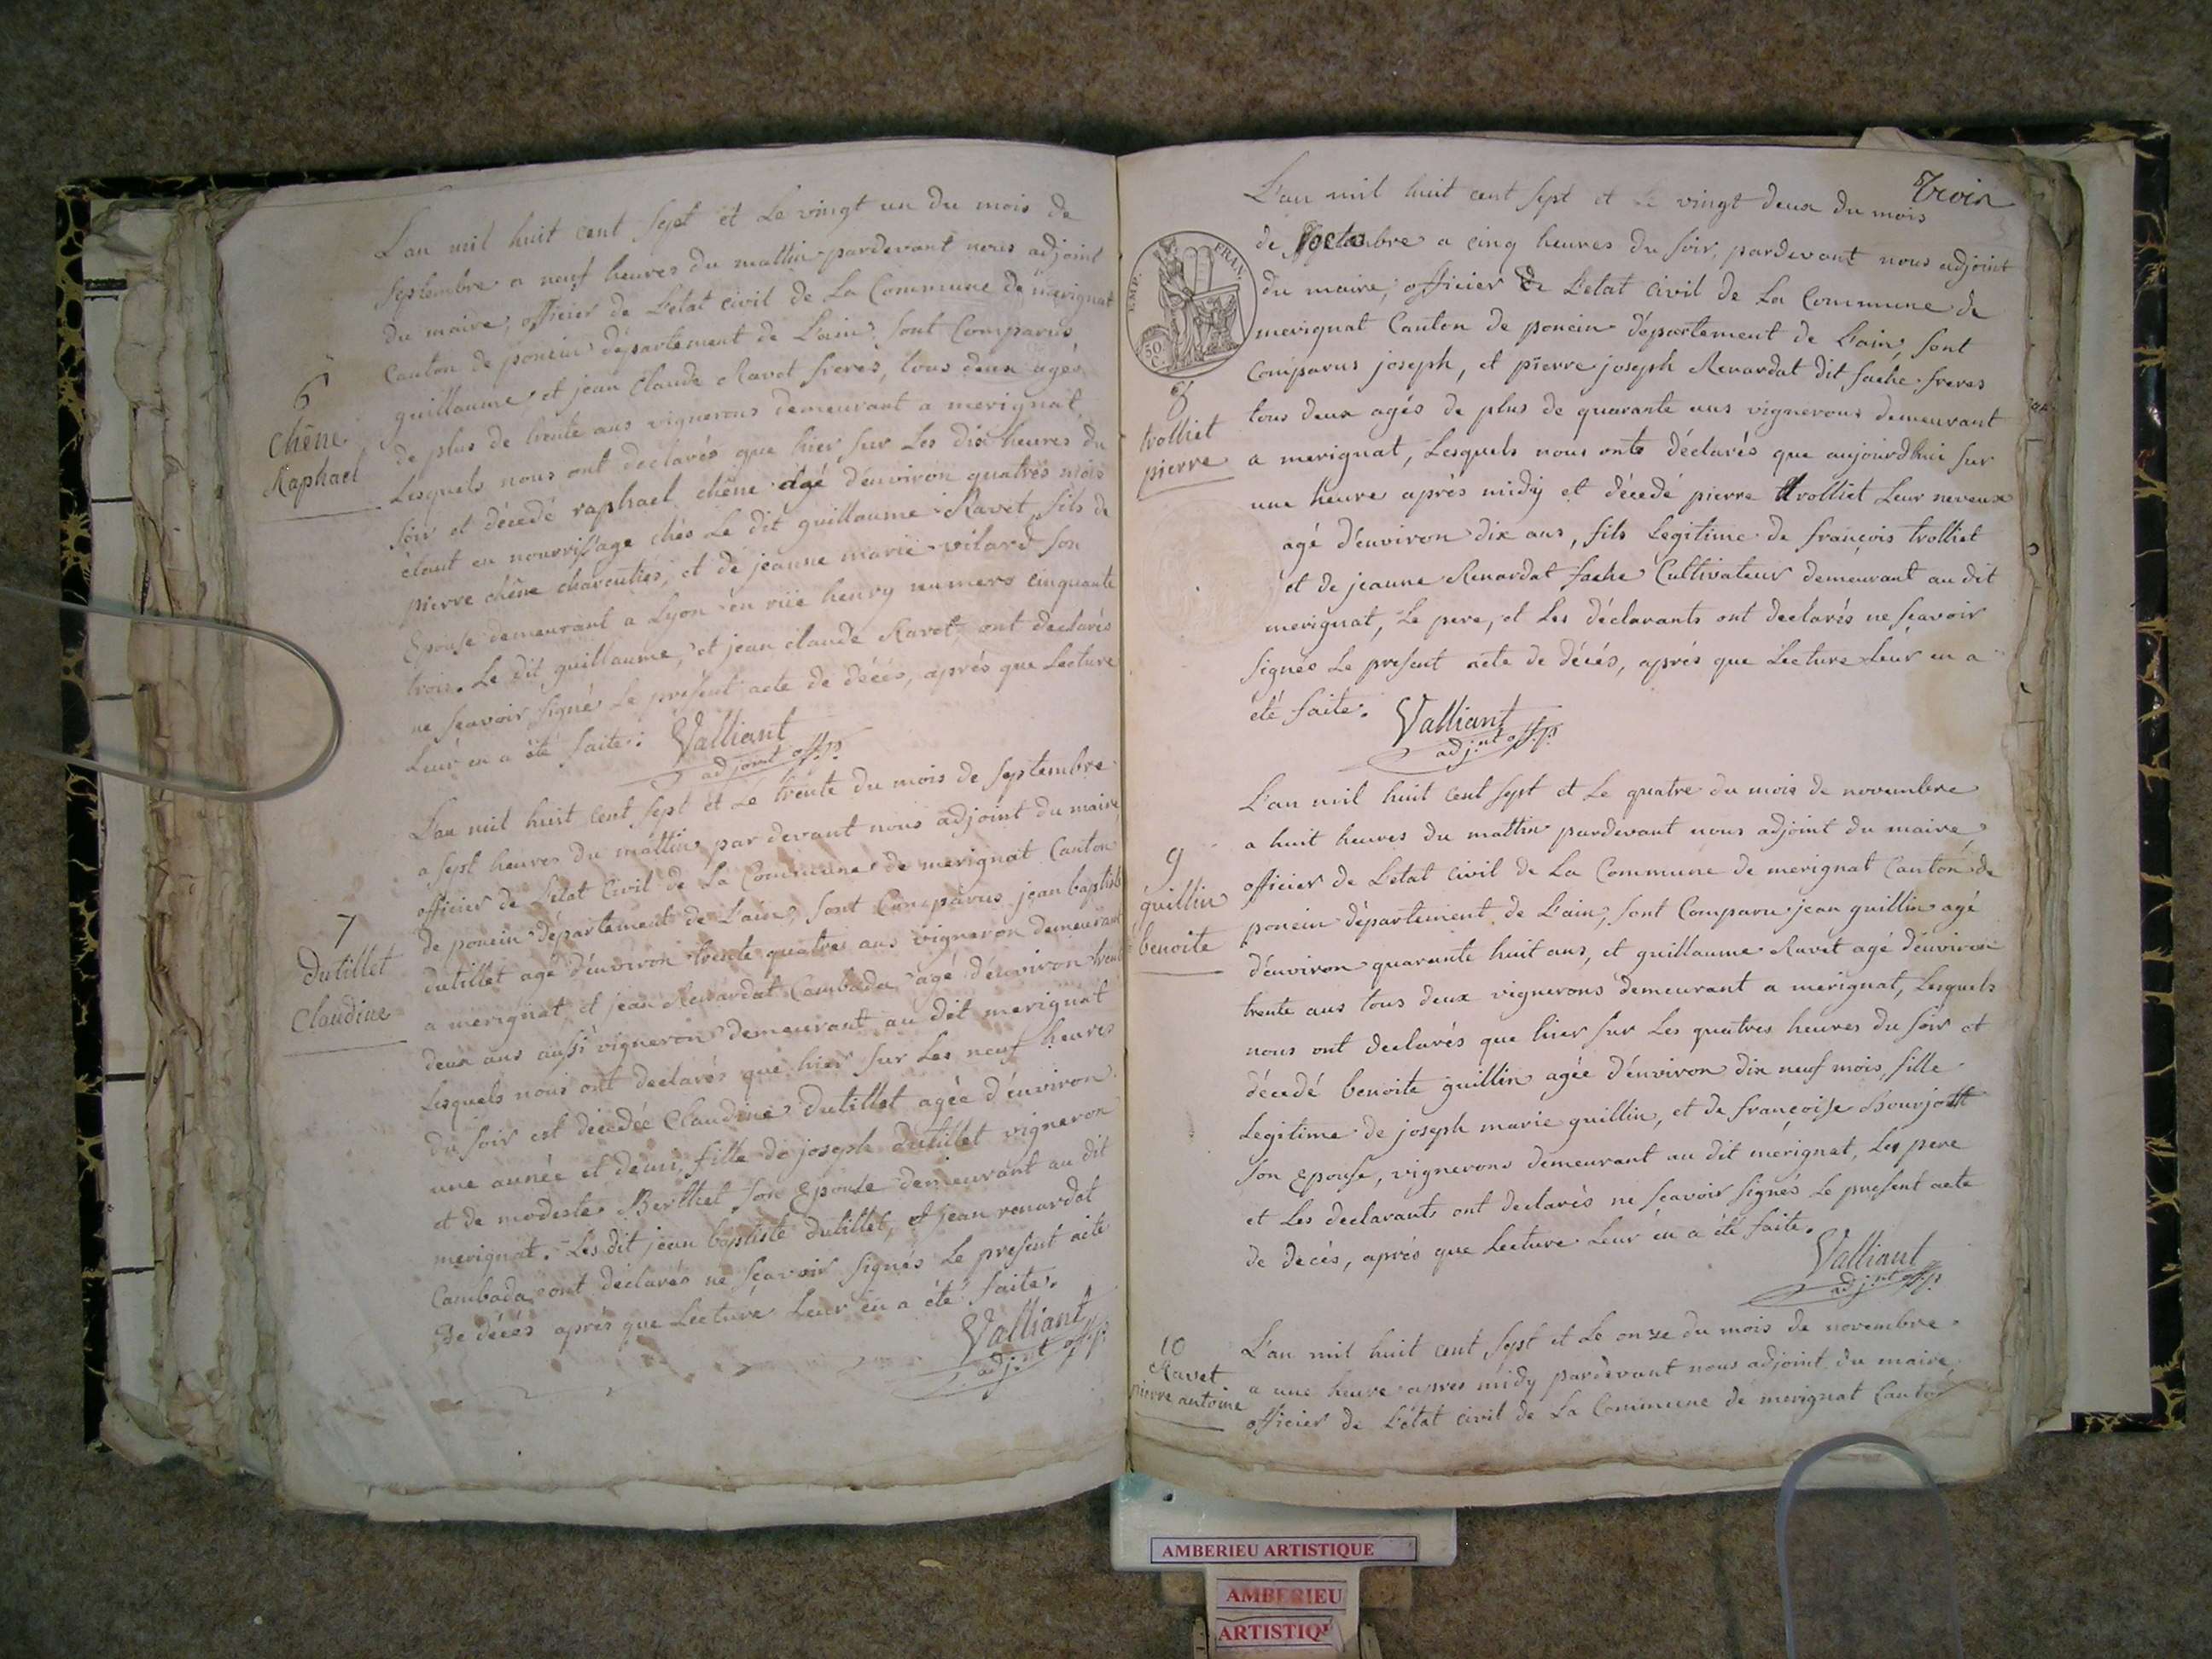 L'an mil huit cent sept et Le vingt un du mois de
septembre a neuf heures du mattin pardevant nous adjoint
du maire, officier de L'etat civil de La Commune de merignat
Canton de poncin département de L'ain, sont Comparus,
guillaume, et jean Claude Ravet freres, tous deux agés,
de plus de trente ans vignerons demeurant a merignat,
Lesquels nous ont declarés que hier sur Les dix heures du
soir et décedé raphael chêne agé d'environ quatres mois
étant en nourrissage chés Le dit guillaume Ravet, fils de
pierre chêne charcutier, et de jeanne marie vilard son
Epouse demeurant a Lyon en rüe henry numero cinquante
trois. Le dit guillaume, et jean claude Ravet, ont declarés
ne sçavoir signé Le present acte de décés, après que Lecture
Leur en a été faite.
Valliant
adjoint off. p.
6
Chêne
Raphael
L'an mil huit cent sept et Le trente du mois de septembre
a sept heures du mattin par devant nous adjoint du maire
officier de L'etat Civil de La Commune de merignat Canton
de poncin département de L'ain, sont Comparus jean baptiste
dutillet agé d'environ trente quatres ans vigneron demeurant
a merignat et jean Renardat Cambada, agé d'environ trente
deux ans aussi vigneron demeurant au dit merignat
Lesquels nous ont declarés que hier sur Les neuf heures
du soir est décedée Claudine Dutillet agée d'environ
une année et demi, fille de joseph dutillet vigneron
et de modeste Berthet son Epouse demeurant au dit
merignat. Les dit jean baptiste dutillet, et jean renardat
Cambada, ont declarés ne sçavoir signés Le present acte
De décés après que Lecture Leur en a été faite.
Valliant
adj.nt off. p.
7
Dutillet
Claudine
Trois
L'an mil huit cent sept et Le vingt deux du mois
de octobre a cinq heures du soir, pardevant nous adjoint
du maire, officier de L'etat civil de La Commune de
merignat Canton de poncin département de L'ain, sont
Comparus joseph, et pierre joseph Renardat dit fache freres
tous deux agés de plus de quarante ans vignerons demeurant
a merignat, Lesquels nous onts déclarés que aujourdhui sur
une heure après midy et décedé pierre trolliet Leur neveux
agé d'environ dix ans, fils Legitime de françois trolliet
et de jeanne Renardat fache Cultivateur demeurant au dit
merignat, Le pere, et Les déclarants ont declarés ne sçavoir
signés Le present acte de décés, après que Lecture leur en a
été faite.
Valliant
adj.nt off. p.
EMP. FRAN.
50.
C.
8
trolliet
pierre
L'an mil huit cent sept et Le quatre du mois de novembre
a huit heures du mattin pardevant nous adjoint du maire
officier de L'etat civil de La Commune de merignat Canton de
poncin département de L'ain, sont Comparu jean guillin agé
d'environ quarante huit ans, et guillaume Ravet agé d'environ
trente ans tous deux vignerons demeurant a merignat, Lesquels
nous ont declarés que hier sur Les quatres heures du soir et
décedé benoite guillin agée d'environ dix neuf mois, fille
Legitime de joseph marie guillin, et de françoise
son Epouse, vignerons demeurant au dit merignat, Les pere
et Les declarants ont declarés ne sçavoir signés Le present acte
de decés, après que Lecture Leur en a été faite.
Valliant
adj.nt off. p.
9
guillin
benoite
L'an mil huit cent sept et Le onze du mois de novembre
a une heure apres midy pardevant nous adjoint du maire
officier de L'état civil de La Commune de merignat Canton
10
Ravet
pierre antoine
AMBERIEU ARTISTIQUE
AMBERIEU
ARTISTIQU